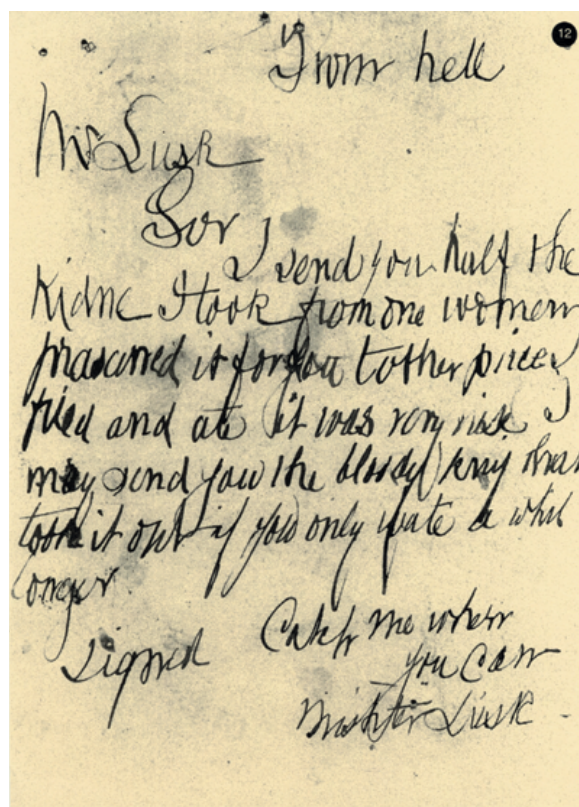 12
From hell
Mr Lusk
Sor
I send you half the
Kidne I took from one women
prasarved it for you tother piece I
fried and ate it was very nise I
may send you the bloody knif that
took it out if you only wate a whil
longer
signed
Catch me when
you can
Mishter Lusk